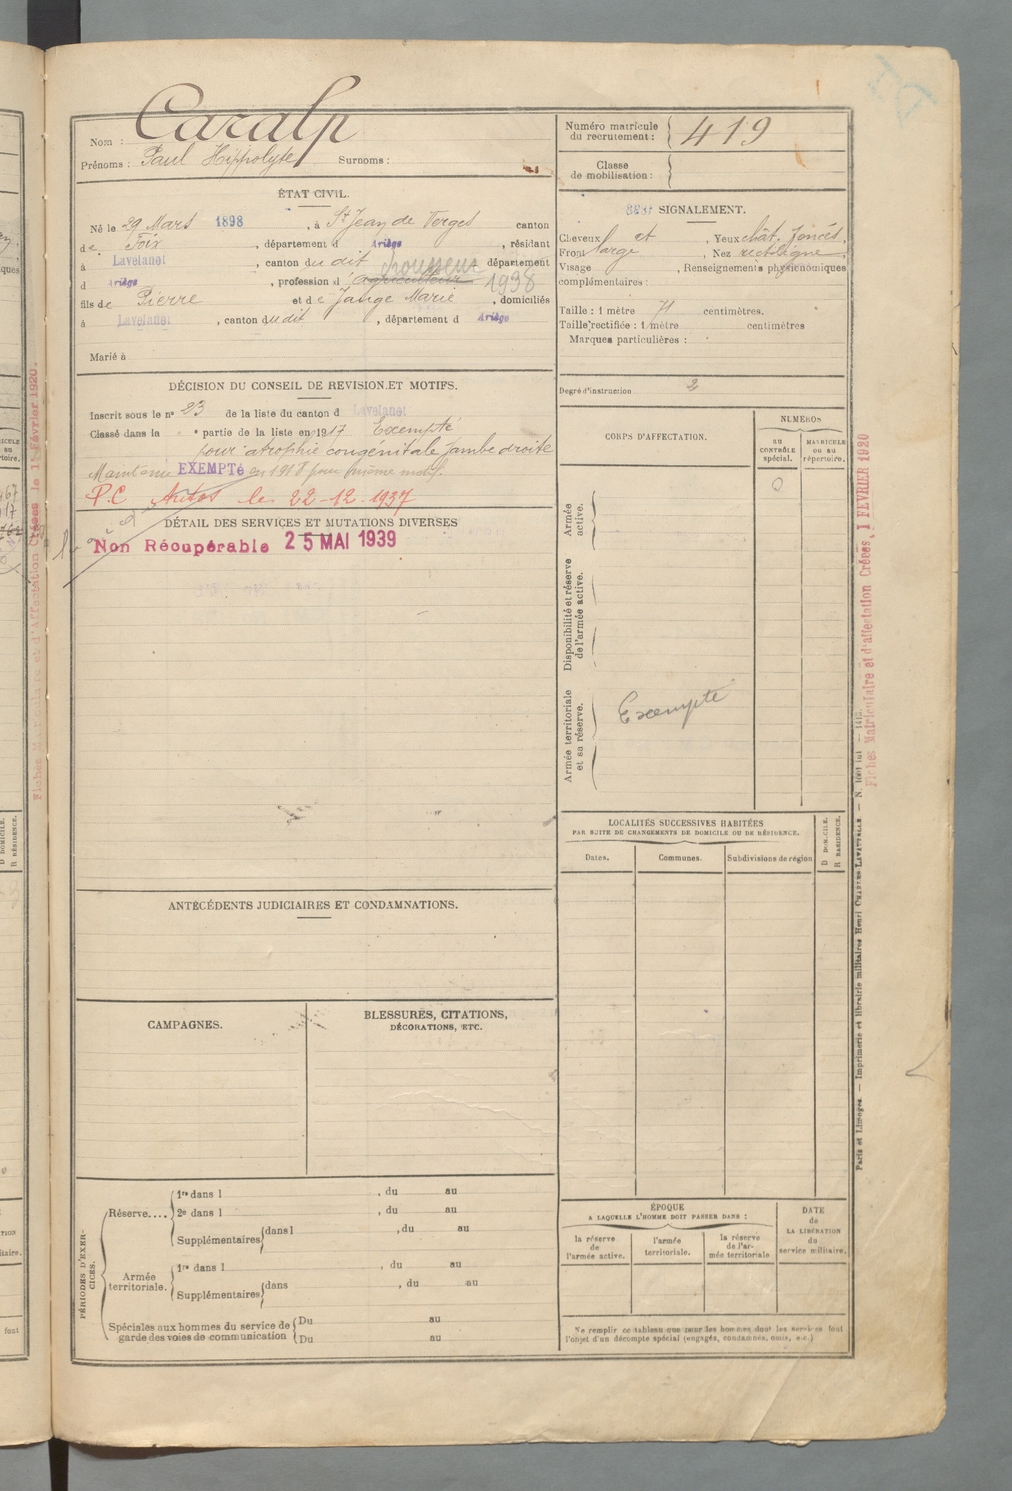 Nom : Caralp
Prénoms : Paul Hippolyte Surnoms :
ÉTAT CIVIL.
Né le 29 Mars 1898, à St Jean de Verges canton
de Foix, département d Ariège, résidant
à Lavelanet, canton du dit département
d Ariège, profession d'agriculteur 1938
fils de Pierre et de Jange Marie, domiciliés
à Lavelanet, canton du dit, département d Ariège
Marié à
DÉCISION DU CONSEIL DE REVISION ET MOTIFS.
Inscrit sous le n° 23 de la liste du canton d Lavelanet
Classé dans la e partie de la liste en 1917 Exempté
pour atrophie congénitale jambe droite
Maintenu EXEMPTé en 1918 pour même motif.
P.C Autos le 22-12-1937
DÉTAIL DES SERVICES ET MUTATIONS DIVERSES
Non Récupérable 25 MAI 1939
ANTÉCÉDENTS JUDICIAIRES ET CONDAMNATIONS.
CAMPAGNES.
BLESSURES, CITATIONS,
DÉCORATIONS, ETC.
PÉRIODES D'EXERCICES.
Réserve....
1re dans l , du au
2e dans l , du au
Supplémentaires dans l , du au
Armée
territoriale.
1re dans l , du au
Supplémentaires dans , du au
Spéciales aux hommes du service de
garde des voies de communication
Du au
Du au
Numéro matricule
du recrutement : 419
Classe
de mobilisation :
SIGNALEMENT.
Cheveux et, Yeux chât. foncés,
Front large, Nez rectiligne,
Visage , Renseignements physionomiques
complémentaires :
Taille : 1 mètre 71 centimètres.
Taille rectifiée : 1 mètre centimètres
Marques particulières :
Degré d'instruction 2
CORPS D'AFFECTATION.
NUMÉROS
au
CONTRÔLE
spécial.
MATRICULE
ou au
répertoire.
0
Armée
active.
Disponibilité et réserve
de l'armée active.
Armée territoriale
et sa réserve.
Exempté
LOCALITÉS SUCCESSIVES HABITÉES
PAR SUITE DE CHANGEMENTS DE DOMICILE OU DE RÉSIDENCE.
Dates.
Communes.
Subdivisions de région
D DOMICILE.
R RÉSIDENCE.
ÉPOQUE
A LAQUELLE L'HOMME DOIT PASSER DANS :
la réserve
de
l'armée active.
l'armée
territoriale.
la réserve
de l'ar-
mée territoriale
DATE
de
LA LIBÉRATION
du
service militaire.
Ne remplir ce tableau que pour les hommes dont les services font
l'objet d'un décompte spécial (engagés, condamnés, omis, etc.)
Fiches Matriculaire et d'affectation Créées, 1 FEVRIER 1920
Paris et Limoges. — Imprimerie et librairie militaires Henri CHARLES-LAVAUZELLE.
Fiches Matriculaire et d'Affectation Créées le 1 Février 1920.